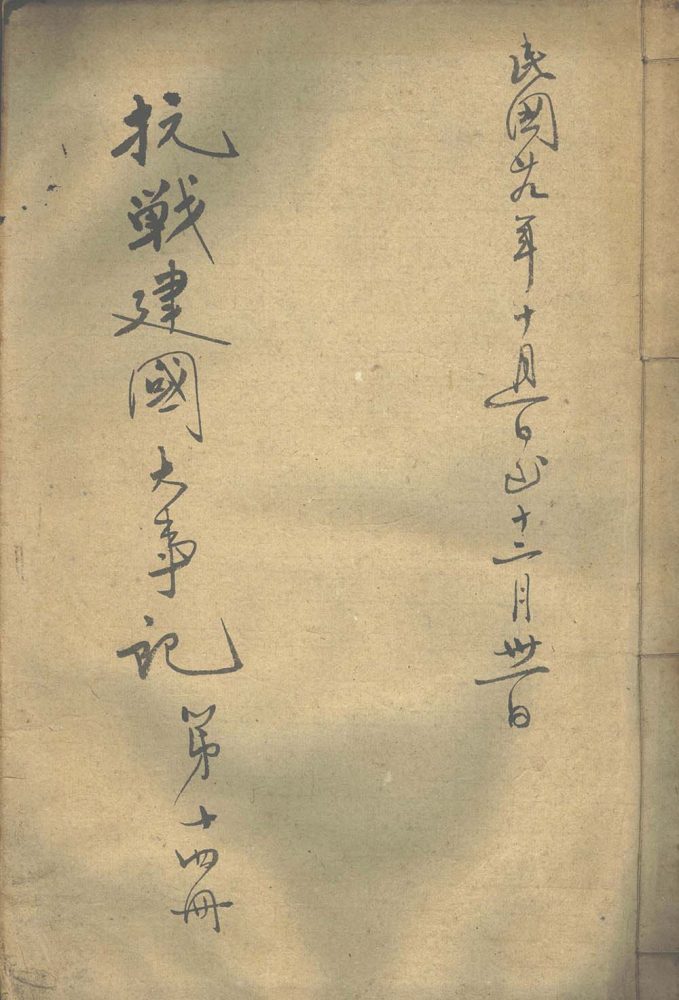 民國廿九年十月一日止十二月卅一日
抗戦建國大事記
第十四冊